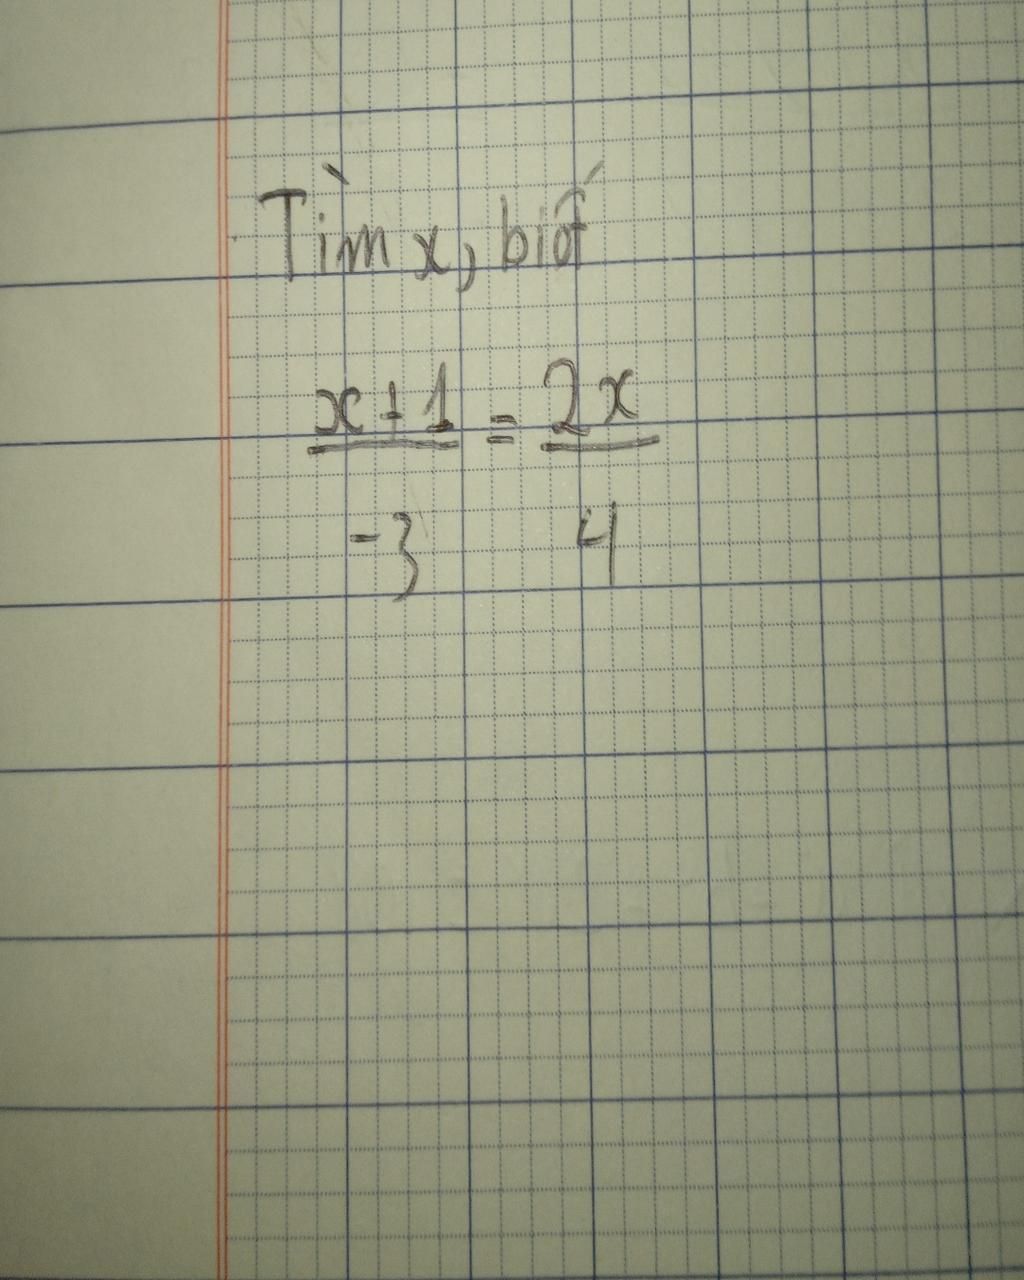 Tìm x, biết
x + 1 = 2x
-3 4